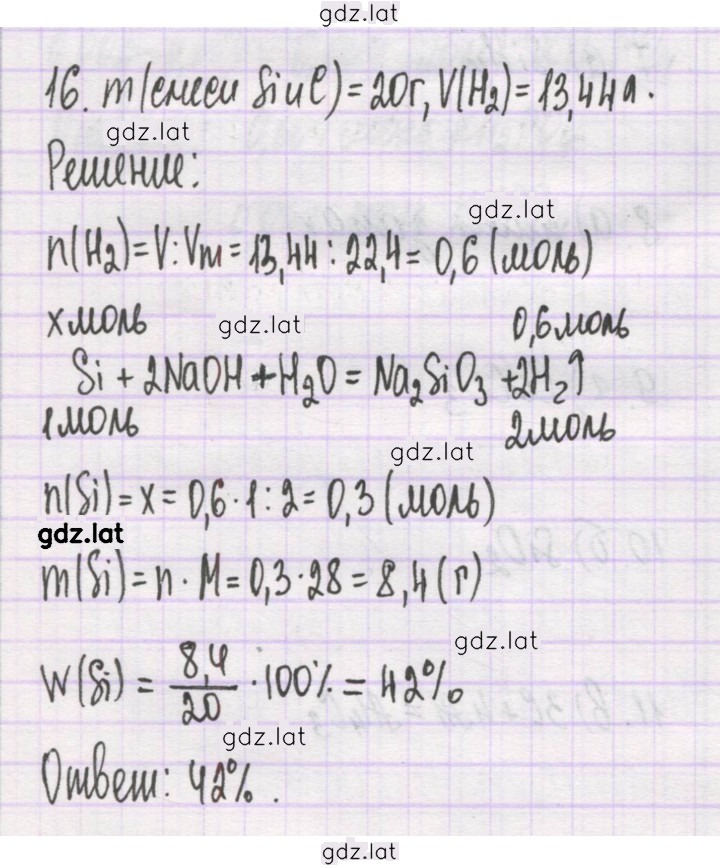 gdz.lat
16. m(смеси Si и C) = 20г, V(H₂) = 13,44л.
gdz.lat
Решение:
gdz.lat
n(H₂) = V : Vm = 13,44 : 22,4 = 0,6 (моль)
x моль gdz.lat 0,6 моль
Si + 2NaOH + H₂O = Na₂SiO₃ + 2H₂↑
1 моль 2 моль
gdz.lat
n(Si) = x = 0,6 · 1 : 2 = 0,3 (моль)
gdz.lat
m(Si) = n · M = 0,3 · 28 = 8,4 (г)
gdz.lat
W(Si) = 8,4/20 · 100% = 42%
gdz.lat
Ответ: 42%.
gdz.lat